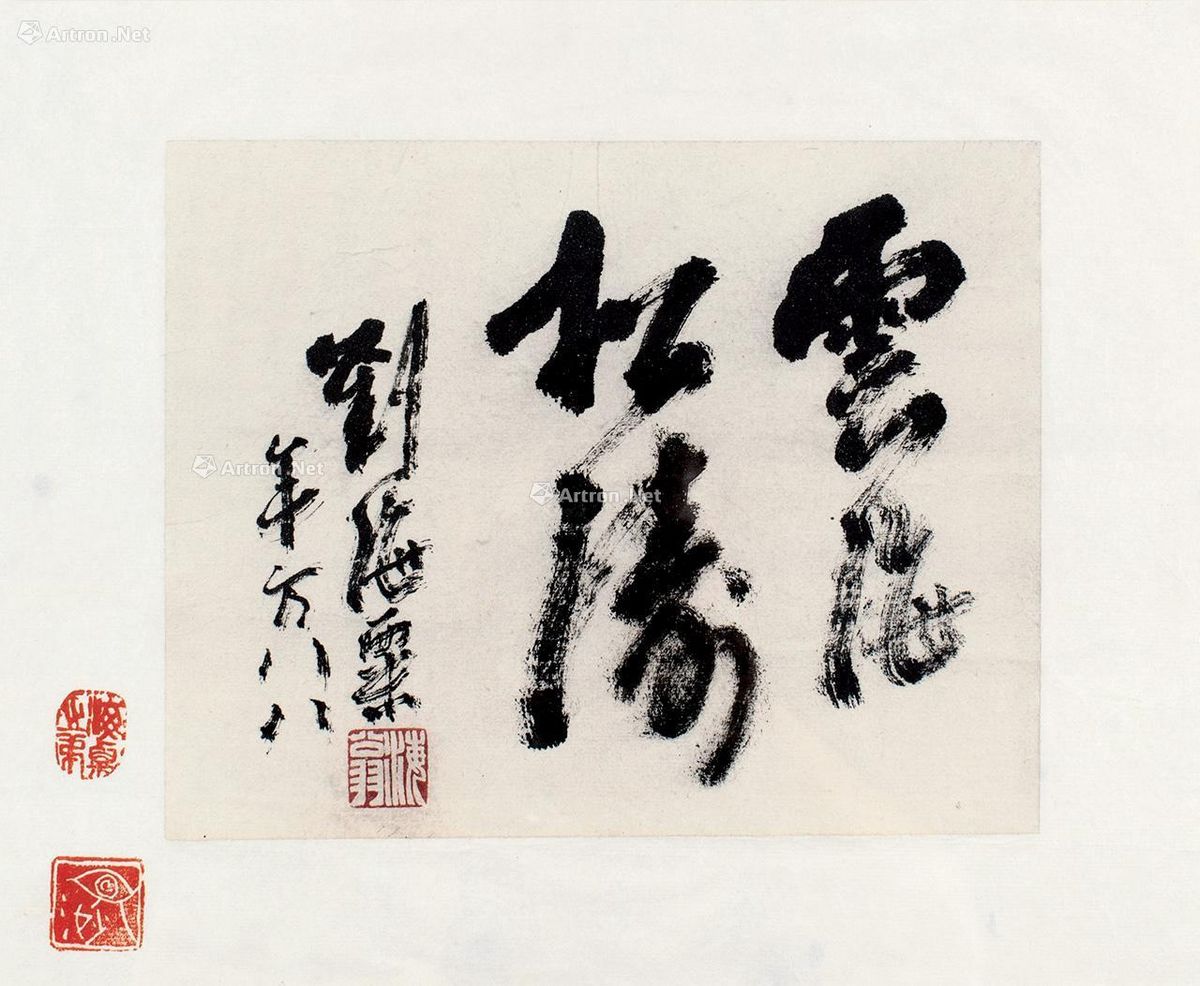 雲海
松濤
劉海粟
年方八八
海翁
Artron.Net
Artron.Net
Artron.Net